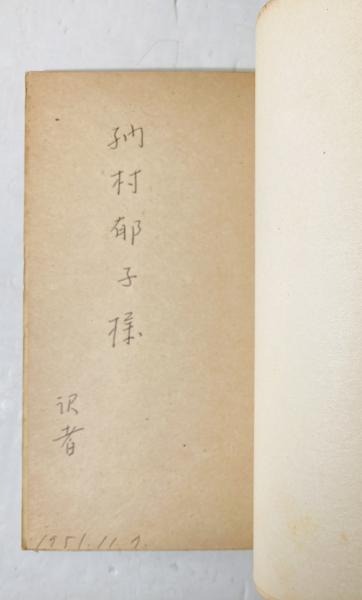 納村郁子様
訳者
1951.11.7.